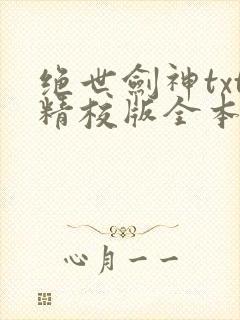 绝世剑神txt
精校版全本
心月一一